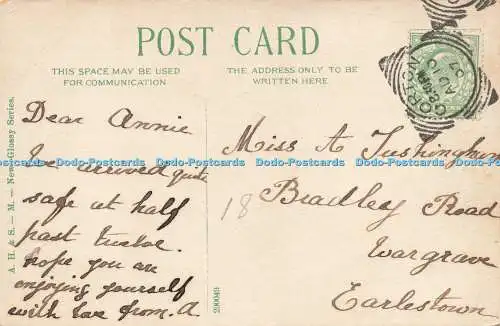 POST CARD
THIS SPACE MAY BE USED
FOR COMMUNICATION
THE ADDRESS ONLY TO BE
WRITTEN HERE
A. H. & S. — M. — News-Glossy Series.
Dear Annie
arrived quite
safe at half
past twelve.
hope you are
enjoying yourself
with love from. A
290049
Miss A Tushingham
18 Bradley Road
Wargrave
Earlestown
Dodo-Postcards Dodo-Postcards Dodo-Postcards Dodo-Postcards Dodo-Postcards Dodo-Postcards